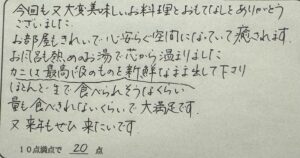 今回も又大変美味しいお料理とおもてなしをありがとう
ございました。
お部屋もきれいで心安らぐ空間になっていて癒されます。
お風呂も熱めのお湯で芯から温まりました
カニは最高に良のものを新鮮なまま出して下さり
ほとんど 生で食べられそうなくらい
量も食べきれないくらいで大満足です。
又来年もぜひ来たいです。
10点満点で 20 点